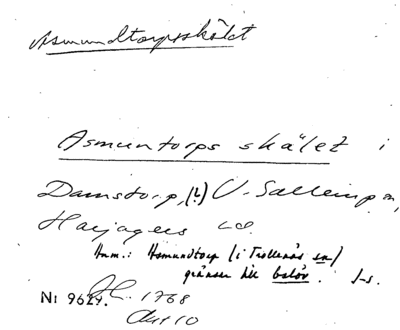 Asmundtorpsskälet
Asmuntorps skälet i
Damstorp, (!) V. Sallerup sn,
Harjagers hd.
Anm.: Asmundtorp (i Trollenäs sn)
gränser till   . J-s.
Ni 9627. 1768
Akt 10